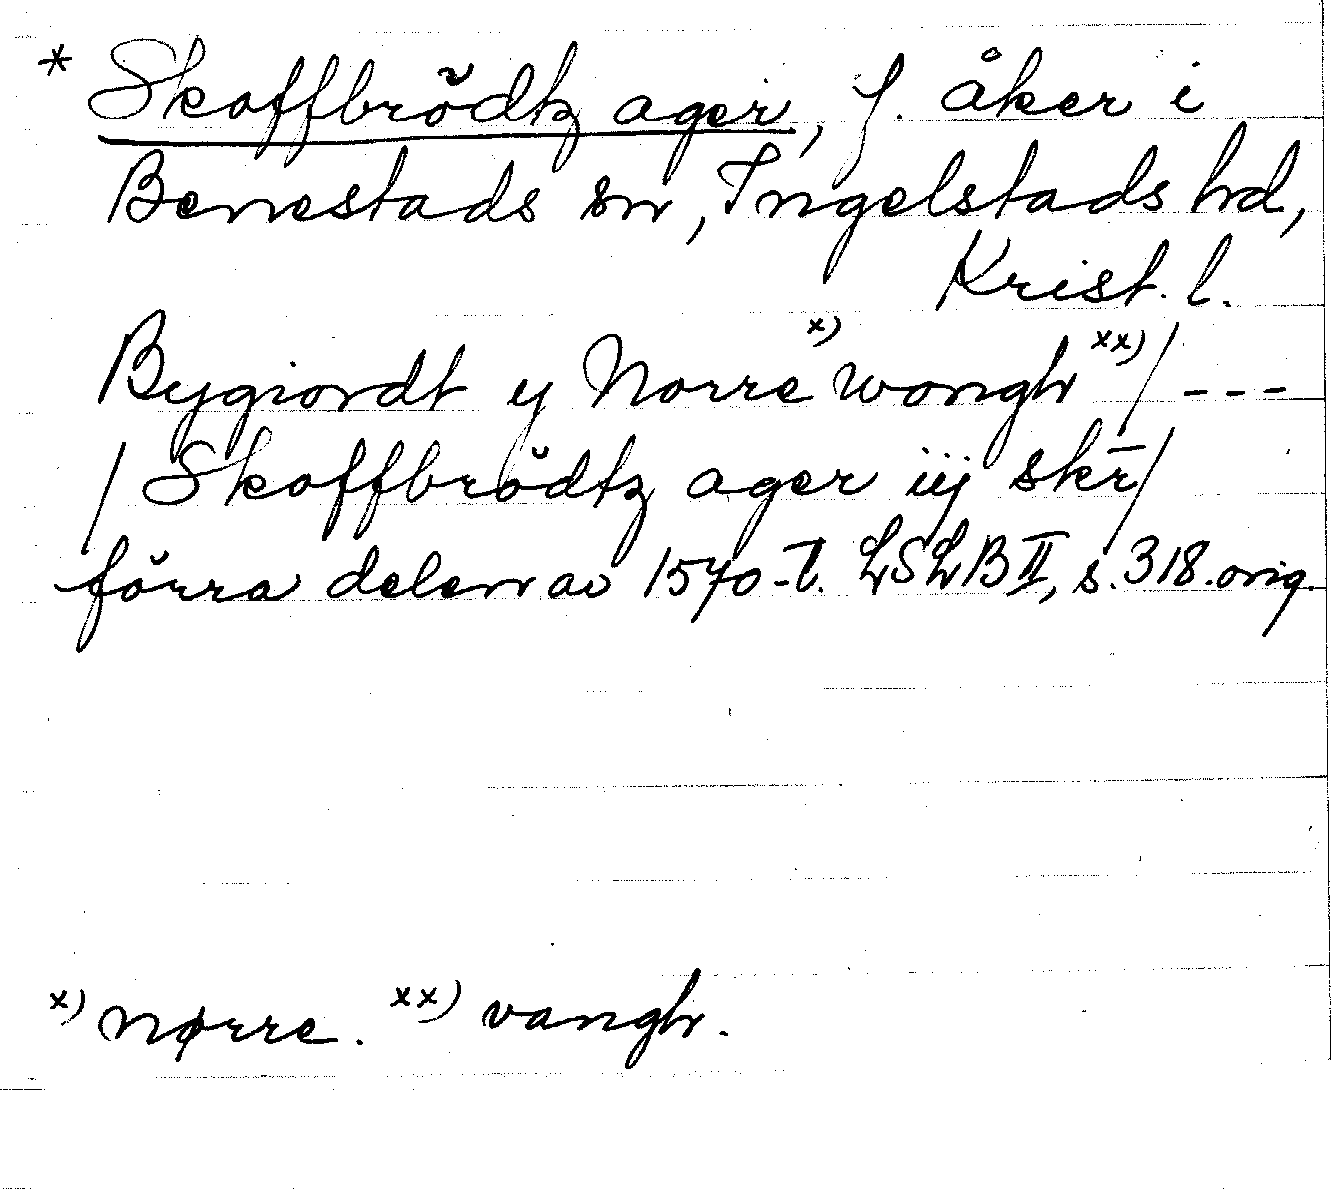 * Skoffbrödtz ager, f. åker i
Benestads sn, Ingelstads hd,
Krist. l.
Bygiordt y Norre x) wongh xx) / ---
/ Skoffbrödtz ager iij skr̄ /
förra delen av 1570-t. LSLB II, s. 318. orig.
x) nørre. xx) vangh.